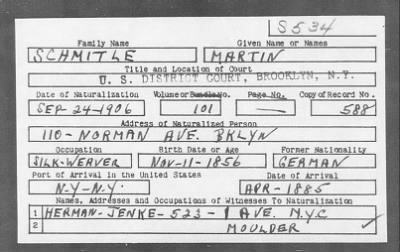 S534
Family Name Given Name or Names
SCHMITLE MARTIN
Title and Location of Court
U. S. DISTRICT COURT, BROOKLYN, N.Y.
Date of Naturalization Volume or Bundle No. Page No. Copy of Record No.
SEP-24-1906 101 — 588
Address of Naturalized Person
110-NORMAN AVE. BKLYN
Occupation Birth Date or Age Former Nationality
SILK-WEAVER NOV-11-1856 GERMAN
Port of Arrival in the United States Date of Arrival
N.Y-N.Y. APR-1885
Names, Addresses and Occupations of Witnesses To Naturalization
1 HERMAN-JENKE-523-1 AVE. N.Y.C
2 MOULDER